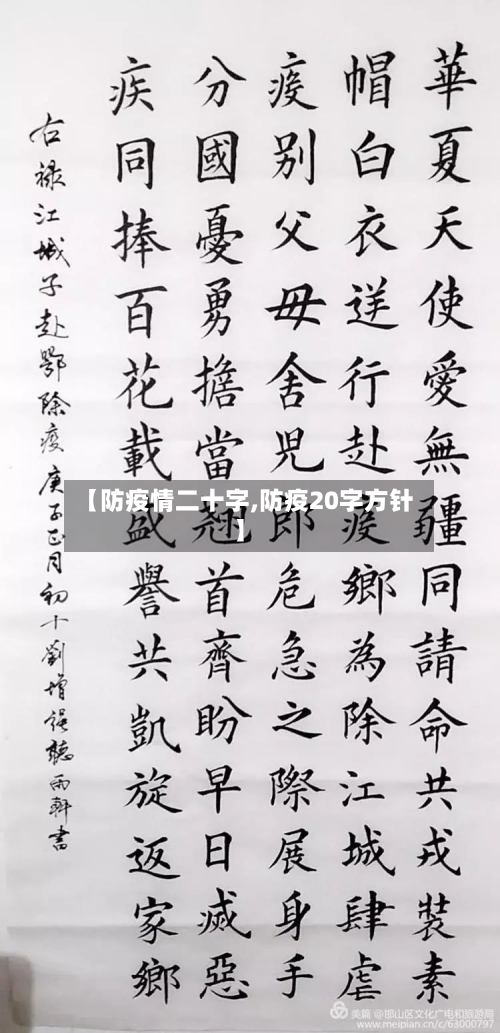 華夏天使愛無疆同請命共戎裝素
帽白衣逆行赴疫鄉為除江城肆虐
疫别父母舍児郎危急之際展身手
分國憂勇擔當翹首齊盼早日滅惡
疾同捧百花載盛譽共凱旋返家鄉
右禄江城子赴鄂除疫庚子正月初十劉增强聽雨軒書
【防疫情二十字,防疫20字方针
】
美篇 @邯山区文化广电和旅游局
www.meipian.cn/c/63000797